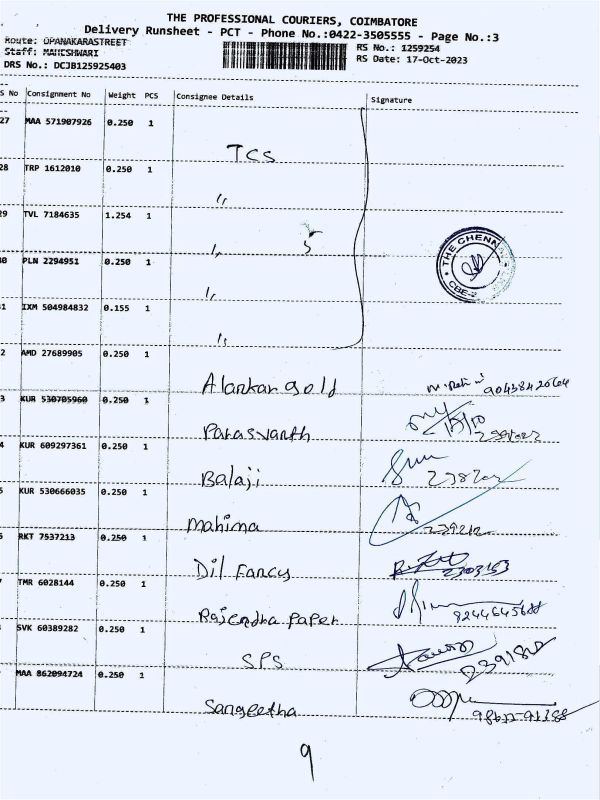 THE PROFESSIONAL COURIERS, COIMBATORE
Delivery Runsheet - PCT - Phone No.:0422-3505555 - Page No.:3
Route: OPANAKARASTREET
RS No.: 1259254
Staff: MAHESHWARI
RS Date: 17-Oct-2023
DRS No.: DCJB125925403
S No Consignment No Weight PCS Consignee Details Signature
27 MAA 571907926 0.250 1
TCS
28 TRP 1612010 0.250 1
"
29 TVL 7184635 1.254 1
" 5
THE CHENN
30 PLN 2294951 0.250 1
"
CBE-2
31 IXM 504984832 0.155 1
"
2 AMD 27689905 0.250 1
Alankar gold
3 KUR 530705960 0.250 1
Parasvanth
4 KUR 609297361 0.250 1
Balaji
5 KUR 530666035 0.250 1
Mahima
6 RKT 7537213 0.250 1
Dil Fancy
7 TMR 6028144 0.250 1
Rajendha Paper
SVK 60389282 0.250 1
SPS
MAA 862094724 0.250 1
Sangeetha
9